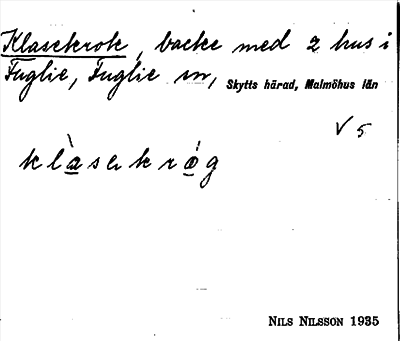 Klasekrok, backe med 2 hus i
Fuglie, Fuglie sn, Skytts härad, Malmöhus län
V 5
klàsəkrǿg
NILS NILSSON 1935